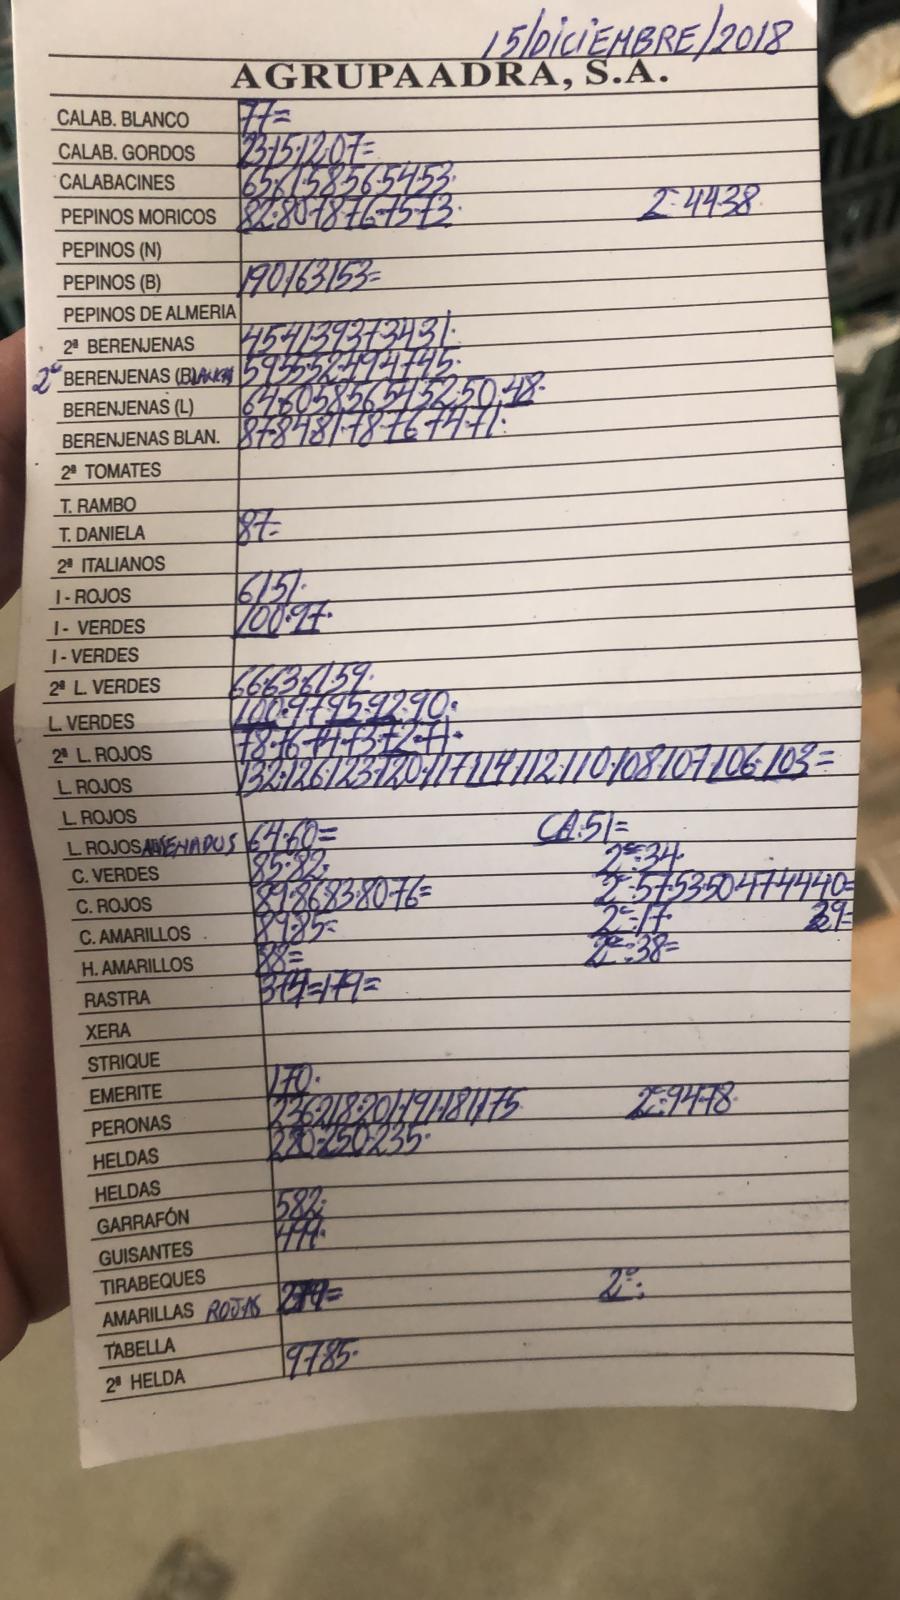 15/DICIEMBRE/2018
AGRUPAADRA, S.A.
CALAB. BLANCO 77=
CALAB. GORDOS 23·15·12·07=
CALABACINES 65·61·58·56·54·53·
PEPINOS MORICOS 82·80·78·76·75·73· 2ª=44·38
PEPINOS (N)
PEPINOS (B) 190/163/153=
PEPINOS DE ALMERIA
2ª BERENJENAS 45·41·39·37·34·31·
2ª BERENJENAS (BLANCAS) 59·55·52·49·47·45·
BERENJENAS (L) 64·60·58·56·54·52·50·48·
BERENJENAS BLAN. 87·84·81·78·76·74·71·
2ª TOMATES
T. RAMBO
T. DANIELA 87=
2ª ITALIANOS
I - ROJOS 61·51·
I - VERDES 100·97·
I - VERDES
2ª L. VERDES 66·63·61·59·
L. VERDES 100·97·95·92·90·
2ª L. ROJOS 78·76·74·73·72·71·
L. ROJOS 132·126·123·120·117·114·112·110·108·107·106·103=
L. ROJOS
L. ROJOS 64·60= CA:51=
C. VERDES 85·82· 2ª:34·
C. ROJOS 89·86·83·80·76= 2ª:57·53·50·47·44·40=
C. AMARILLOS 89·85= 2ª:17· 39=
H. AMARILLOS 88= 2ª:38=
RASTRA =179=
XERA
STRIQUE
EMERITE 170·
PERONAS 236·218·201·191·181·175 2ª:94·78·
HELDAS 280·250·235·
HELDAS
GARRAFÓN 582·
GUISANTES
TIRABEQUES
AMARILLAS ROJAS 2ª:
TABELLA
2ª HELDA 97·85·